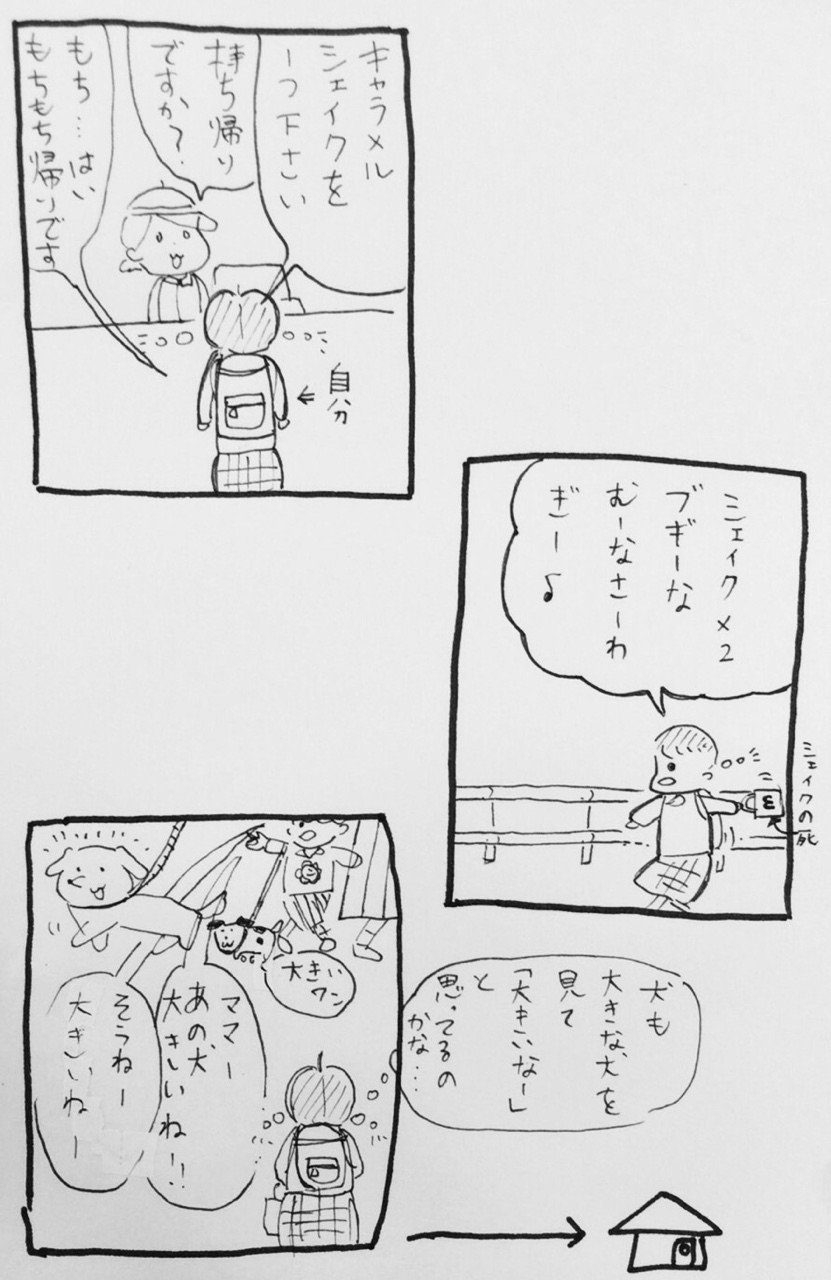 キャラメル
シェイクを
一つ下さい
持ち帰り
ですか?
もち…はい
もちもち帰りです
自分
シェイク×2
ブギーな
むーなさーわ
ぎー♪
シェイクの死
大きい
ワン
ママー
あの犬、
大きいねー!!
そうねー
大きいねー
犬も
大きな犬を
見て
「大きいなー」
と
思ってるの
かな…